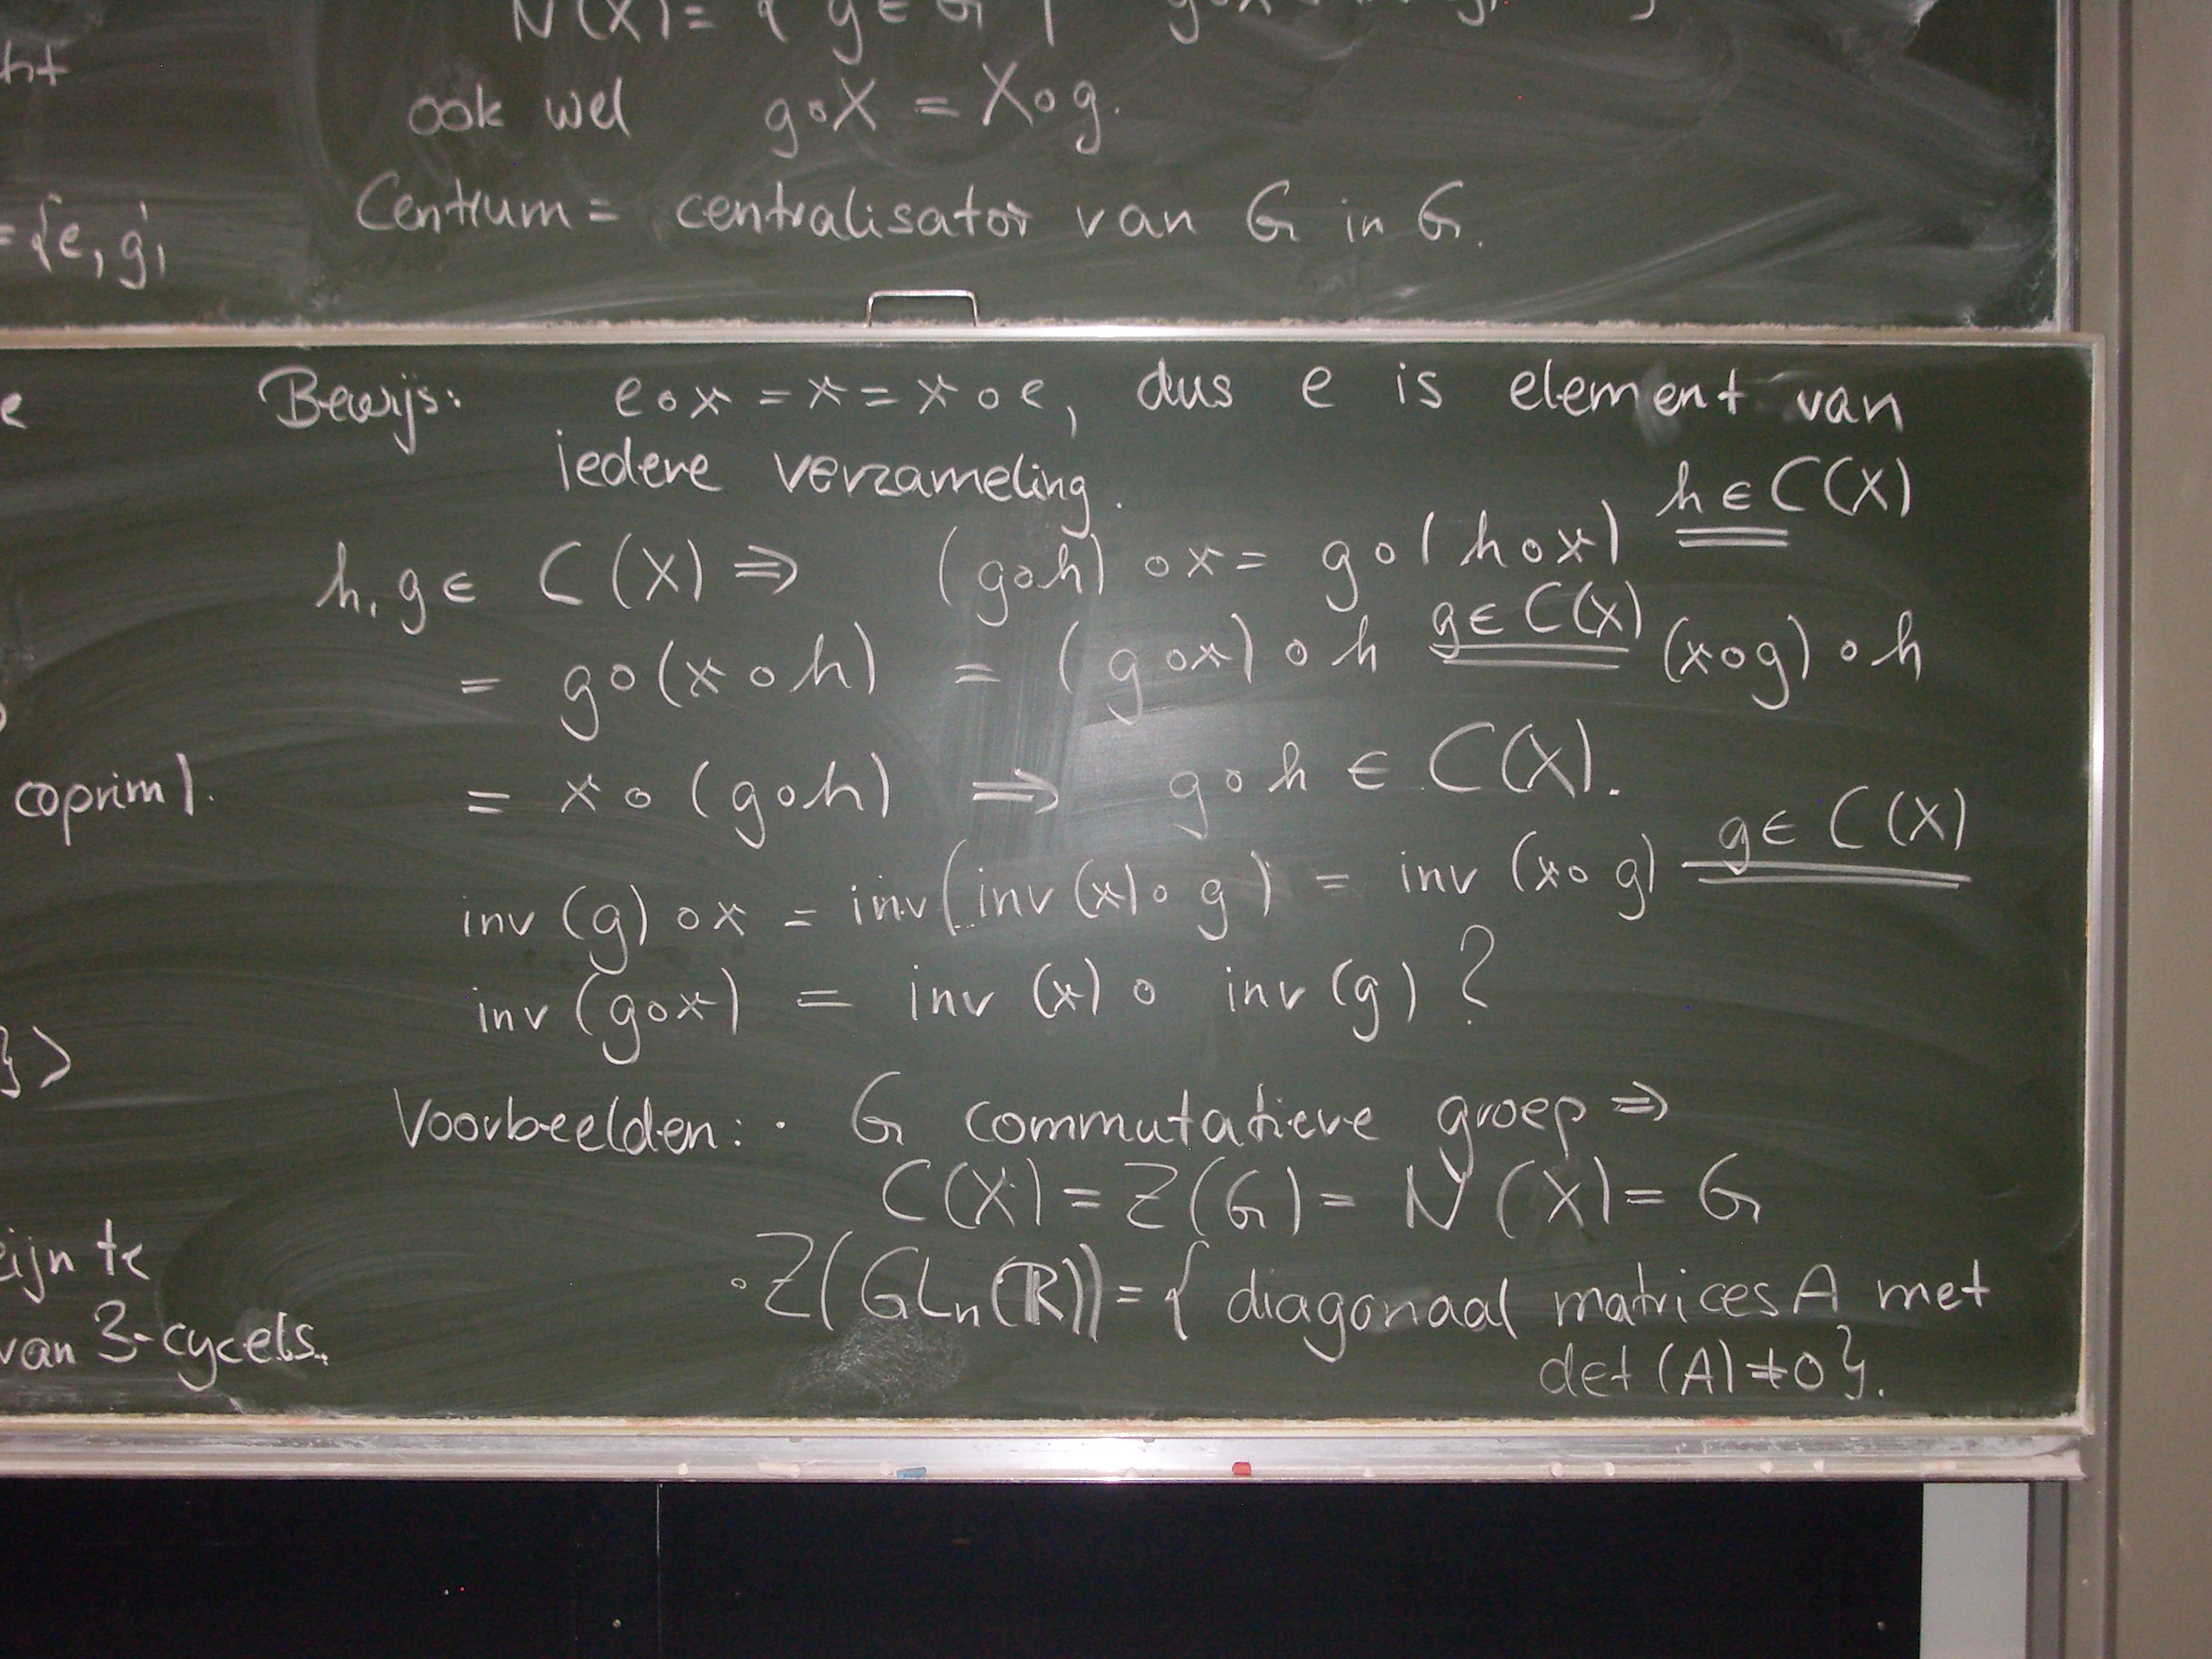 N(X) = { g ∈ G |
ook wel g∘X = X∘g.
Centrum = centralisator van G in G.
= {e, g,
Bewijs: e∘x = x = x∘e, dus e is element van
iedere verzameling.
h, g ∈ C(X) ⇒ (g∘h)∘x = g∘(h∘x) h ∈ C(X) =
= g∘(x∘h) = (g∘x)∘h g ∈ C(X) = (x∘g)∘h
= x∘(g∘h) ⇒ g∘h ∈ C(X).
inv(g)∘x = inv(inv(x)∘g) = inv(x∘g) g ∈ C(X) =
inv(g∘x) = inv(x)∘inv(g) ?
Voorbeelden: · G commutatieve groep ⇒
C(X) = Z(G) = N(X) = G
· Z(GLn(ℝ)) = { diagonaal matrices A met
det(A) ≠ 0}.
e
coprim).
}>
te
van 3-cycels.